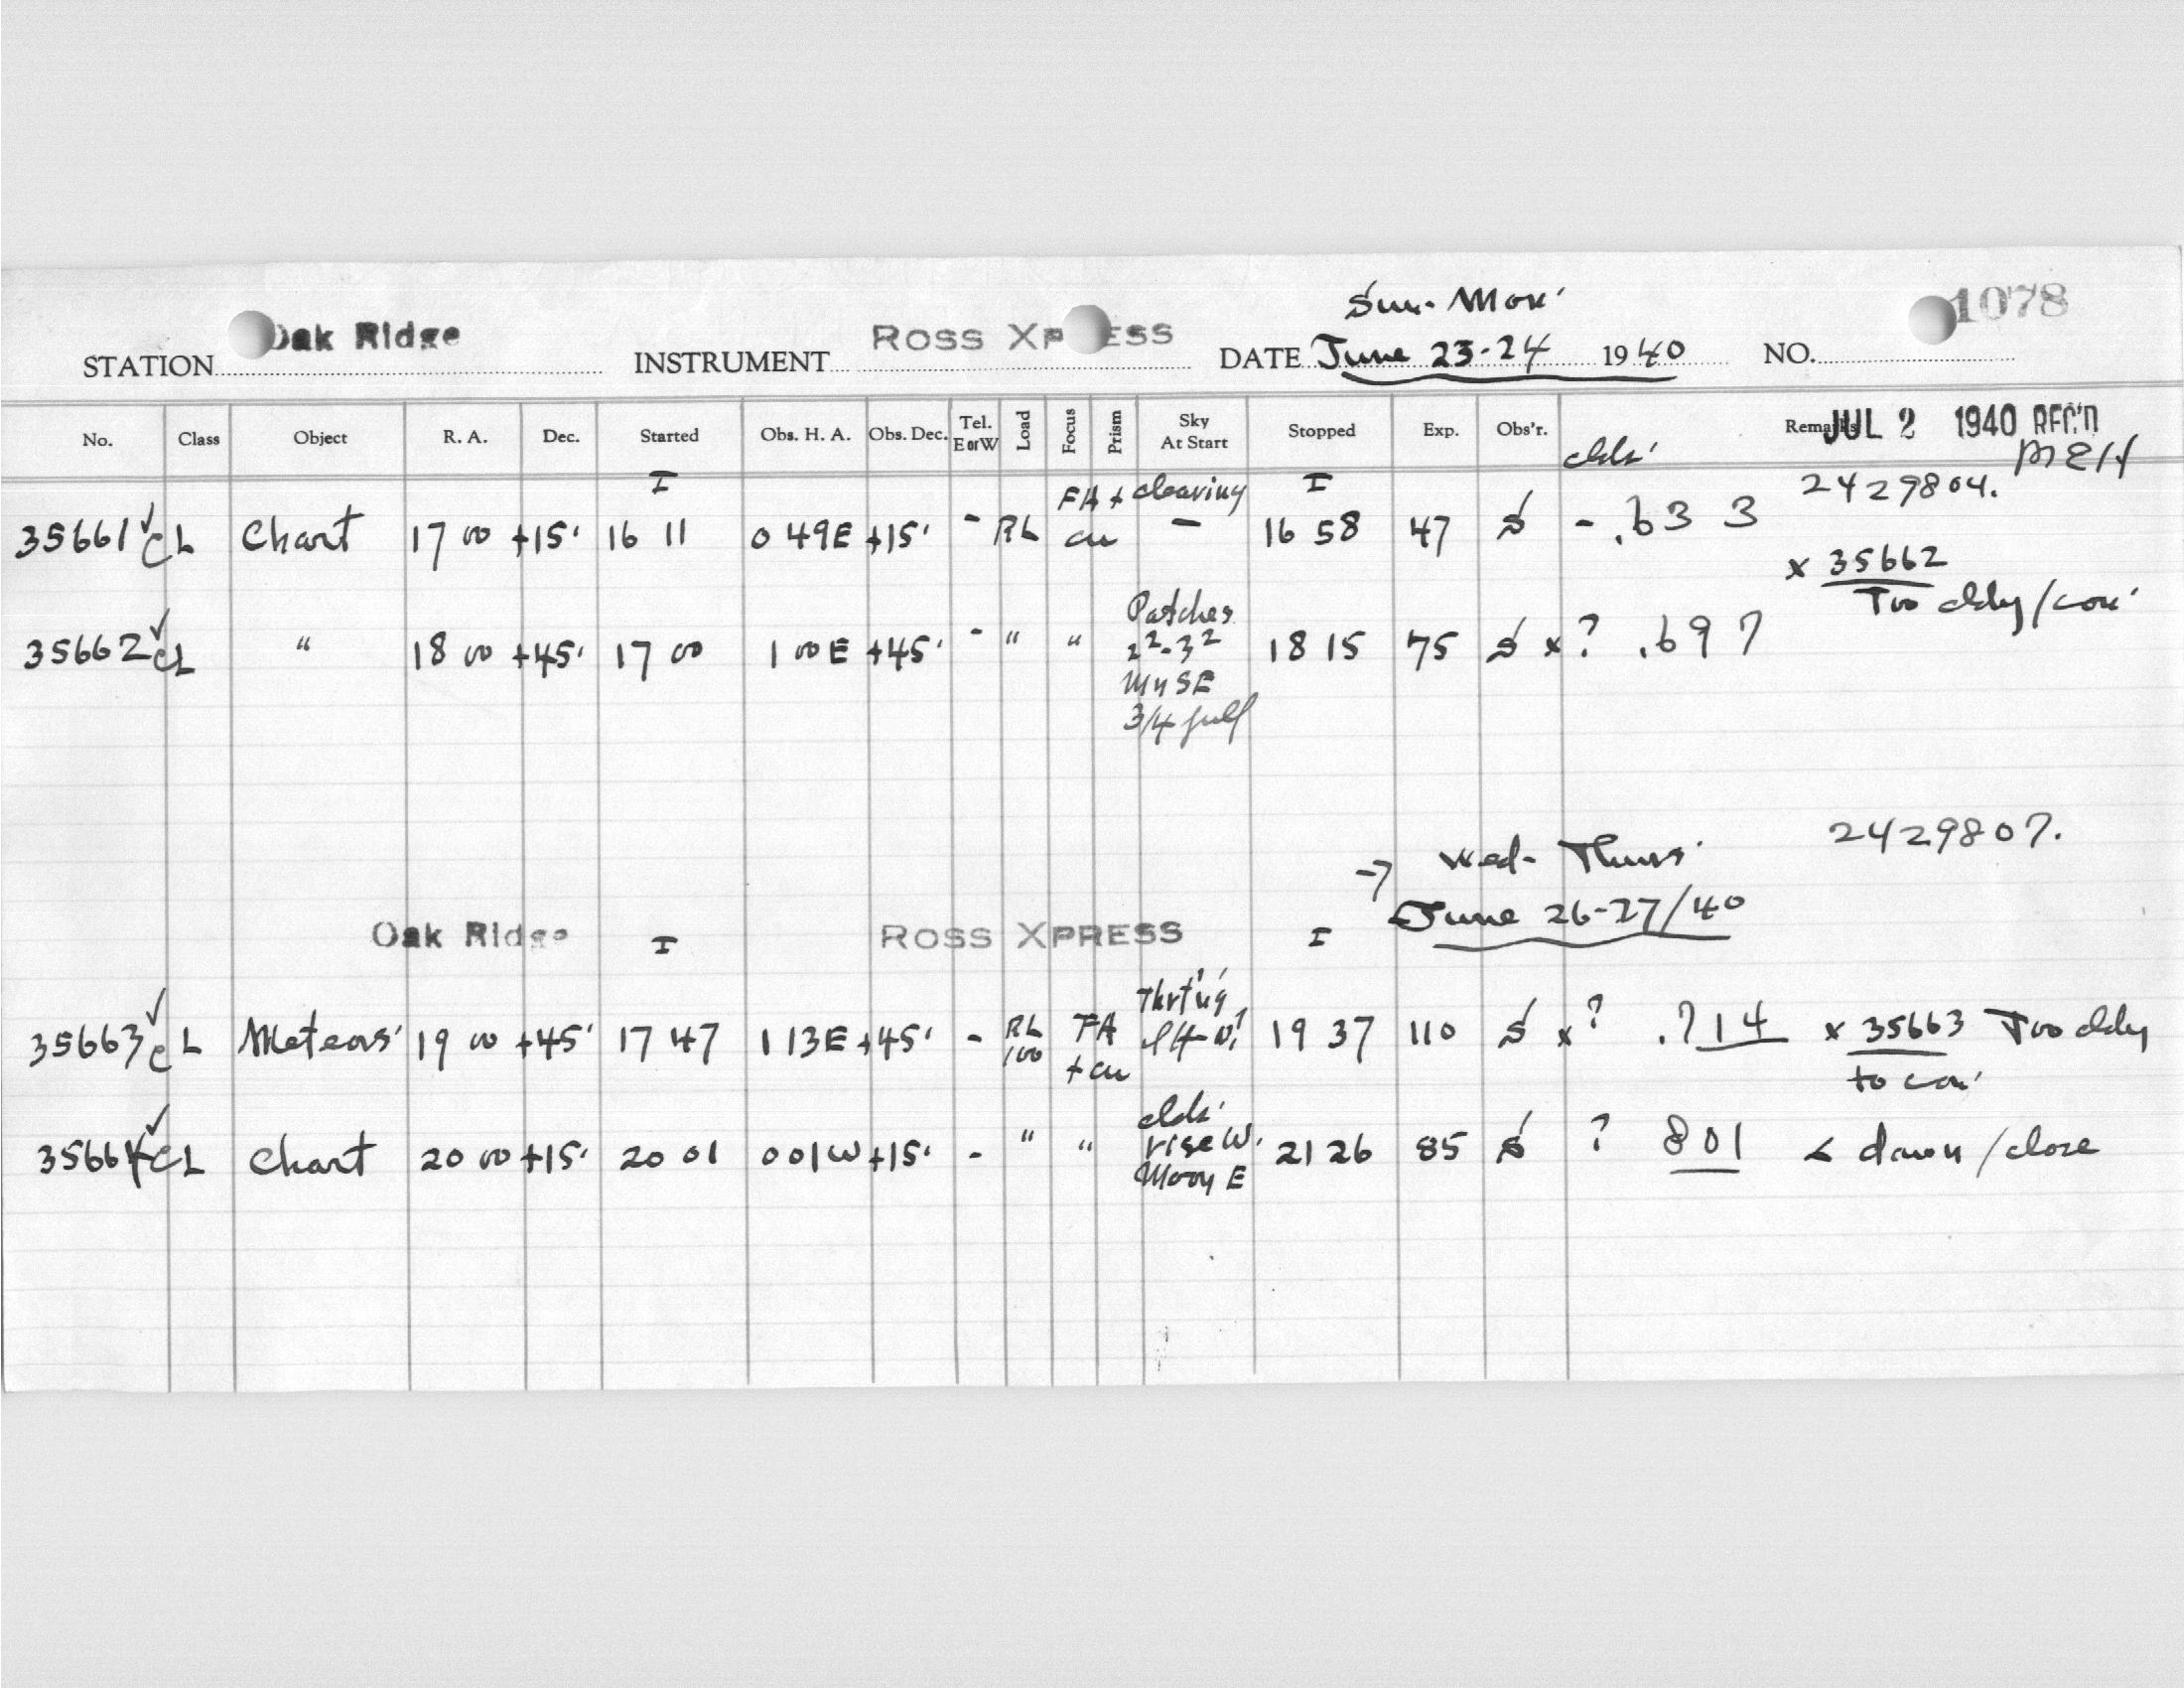 Sun. Mon.
STATION Oak Ridge INSTRUMENT ROSS XPRESS DATE June 23-24 1940 NO. 1078
No. Class Object R. A. Dec. Started Obs. H. A. Obs. Dec. Tel. E or W Load Focus Prism Sky At Start Stopped Exp. Obs'r. Remarks JUL 2 1940 REC'D
clds' MEH
I FA + clearing I 2429804.
35661 ✓ CL Chart 17 00 +15' 16 11 0 49E +15' - RL cu - 16 58 47 S - .633
x 35662
Too cldy/con'
Patches
35662 ✓ CL " 18 00 +45' 17 00 1 00E +45' - " " 2²-3² 18 15 75 S x ? .697
Mn SE
3/4 full
2429807.
→ Wed- Thurs'
June 26-27/40
Oak Ridge I ROSS XPRESS I
35663 ✓ CL Meteors' 19 00 +45' 17 47 1 13E +45' - RL 100 FA + cu 19 37 110 S x ? .714 x 35663 Too cldy
to con'
clds'
35664 ✓ CL Chart 20 00 +15' 20 01 0 01W +15' - " " rise W. 21 26 85 S ? 801 < dawn/close
Moon E